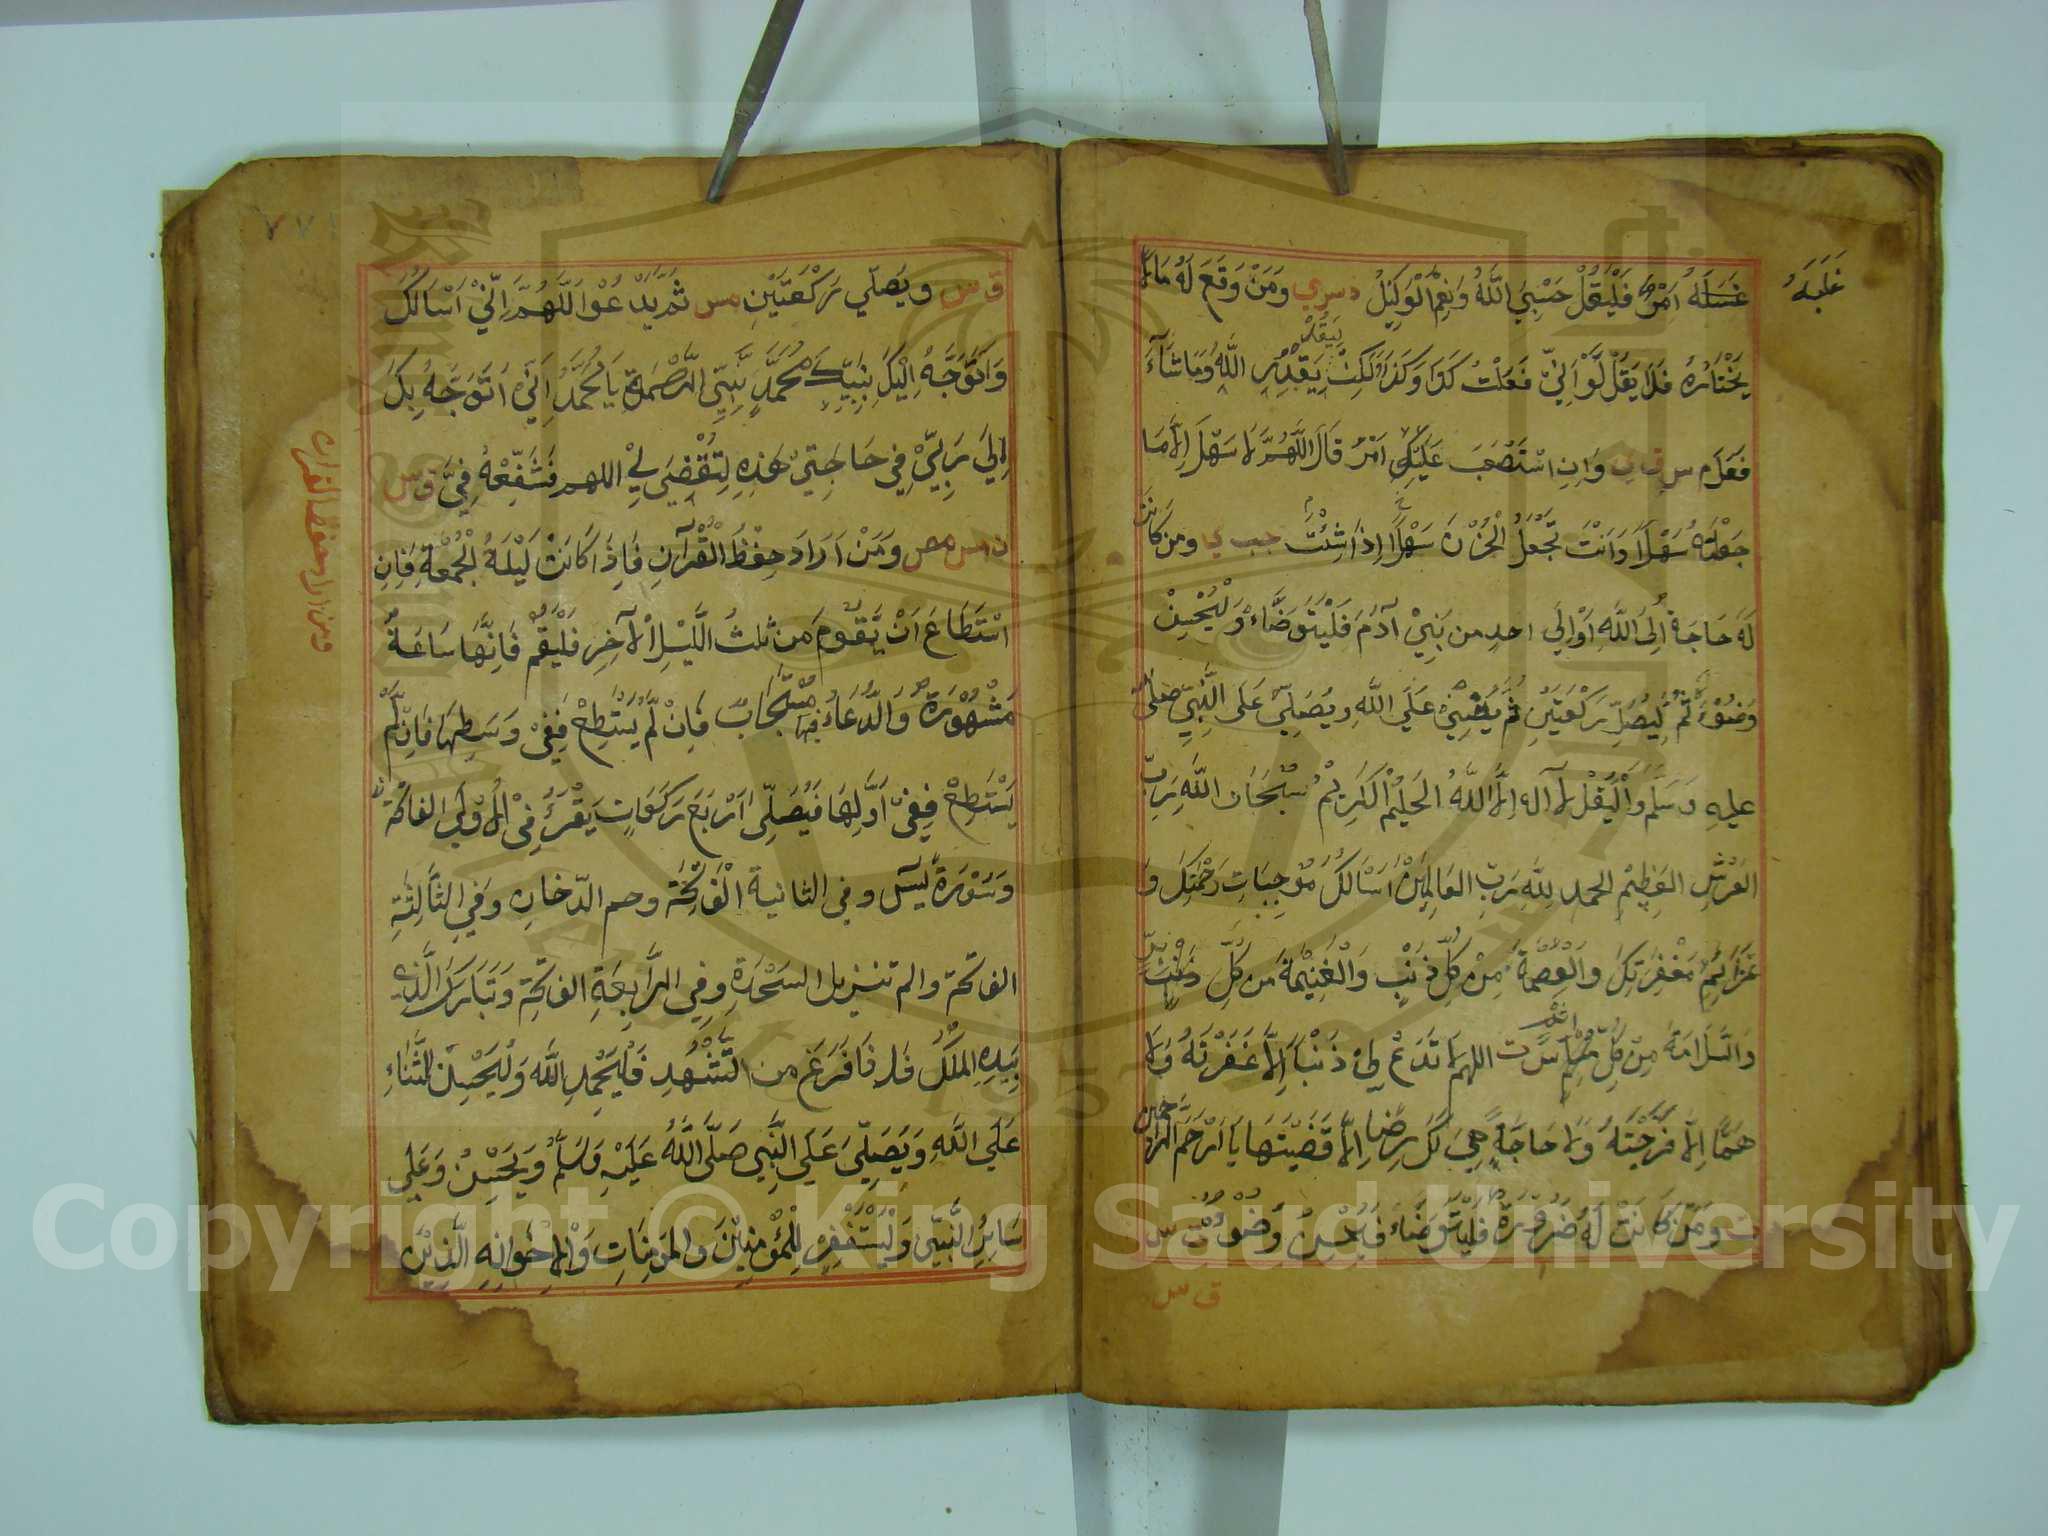 غَلَبَهُ
غسَلَهُ اَمْرٌ فَلْيَقُلْ حَسْبِيَ اللَّهُ وَنِعْمَ الْوَكِيْلُ دسري وَمَنْ وَقَعَ لَهُ مَالَا
يَخْتَارُهُ فَلَا يَقُلْ لَوْ اَنِّيْ فَعَلْتُ كَذَا وَكَذَا وَلَكِنْ يَقْدُرِ اللَّهُ وَمَا شَاءَ
لِيَقُلْ
فَعَلَ م س ق ي وَاِنِ اسْتَصْعَبَ عَلَيْكَ اَمْرٌ قَالَ اللَّهُمَّ لَا سَهْلَ اِلَّا مَا
جَعَلْتَهُ سَهْلًا وَاَنْتَ تَجْعَلُ الْحُزْنَ سَهْلًا اِذَا شِئْتَ حب ي ومن كَانَتْ
لَهُ حَاجَةٌ اِلَى اللَّهِ اَوْ اِلَى احد من بَنِيْ آدَمَ فَلْيَتَوَضَّاءْ وَلْيُحْسِنْ
وَضُوْءَهُ ثُمَّ لْيُصَلِّ رَكْعَتَيْنِ ثُمَّ يُثْنِيْ عَلَى اللَّهِ وَيُصَلِّيْ عَلَى النَّبِيِّ صَلَّى اللّٰه
عليهِ وَسَلَّمَ وَلْيَقُلْ لَا اله اِلَّا اللَّهُ الحَلِيْمُ الْكَرِيْمُ سُبْحَانَ اللَّهِ رَبِّ
العَرْشِ العَظِيْمِ الحمد لِلَّهِ رَبِّ العَالَمِيْنَ اَسْاَلُكَ مُوْجِبَاتِ رَحْمَتِكَ وَ
عَزَائِمَ مَغْفِرَتِكَ وَالْعِصْمَةَ مِنْ كُلِّ ذَنْبٍ وَالْغَنِيْمَةَ من كُلِّ بِرٍّ
وَالسَّلَامَةَ مِنْ كُلِّ اِثْمٍ مس ت اللهم لَا تَدَعْ لِيْ ذَنْبًا اِلَّا غَفَرْتَهُ وَلَا
هَمًّا اِلَّا فَرَّجْتَهُ وَلَا حَاجَةً هِيَ لَكَ رِضًا اِلَّا قَضَيْتَهَا يَا اَرْحَمَ الرَّاحِمِيْنَ
ت وَمَنْ كَانَتْ لَهُ ضَرُوْرَةٌ فَلْيَتَوَضَّاءْ فَيُحْسِنُ وُضُوْءَهُ ت س
ق س
ق س وَيُصَلِّي رَكْعَتَيْنِ مس ثُمَّ يَدْعُوْ اللَّهُمَّ اِنِّيْ اَسْاَلُكَ
وَاَتَوَجَّهُ اِلَيْكَ بِنَبِيِّكَ مُحَمَّدٍ نَبِيِّ الرَّحْمَةِ يَا مُحَمَّدُ اِنِّيْ اَتَوَجَّهُ بِكَ
اِلَى رَبِّيْ فِيْ حَاجَتِيْ هٰذِهِ لِتُقْضٰى لِيْ اللهم فَشَفِّعْهُ فِيَّ ق س
ت مس مص وَمَنْ اَرَادَ حِفْظَ الْقُرْآنِ فَاِذَا كَانَتْ لَيْلَةُ الْجُمْعَةِ فَاِنِ
اسْتَطَاعَ اَنْ يَّقُوْمَ من ثلثُ الَّيْلِ الْآخِرِ فَلْيَقُمْ فَاِنَّهَا سَاعَةٌ
مَشْهُوْدَةٌ وَالدُّعَاءُ فِيهَا مُسْتَجَابٌ فَاِنْ لَمْ يَسْتَطِعْ فَفِيْ وَسَطِهَا فَاِنْ لَّمْ
يَسْتَطِعْ فَفِيْ اَوَّلِهَا فَيُصَلِّي اَرْبَعَ رَكَعَاتٍ يَقْرَءُ فِيْ الْاُوْلَى الفاتحة
وَسُوْرَةَ يٰسٓ وفي الثانية الْفَاتِحَة وحم الدّخان وَفِي الثَّالِثَةِ
الفاتحة والم تنزيل السَجْدَةِ وَفِي الرَّابِعَةِ الفاتحة وَتَبَارَكَ الَّذِي
بِيَدِهِ المُلْكُ فَاِذَا فَرَغَ من التَّشَهُّدِ فَلْيَحْمَدِ اللَّه وَلْيُحْسِنْ الثَّنَاءَ
عَلَى اللَّهِ وَيُصَلِّيَ عَلَى النَّبِي صَلَّى اللَّهُ عَلَيْهِ وَسَلَّمَ وَيُحْسِنُ وَعَلٰى
سَائِرِ النَّبِيّٖنَ وَلْيَسْتَغْفِرْ لِلْمُؤْمِنِيْنَ وَالمؤمِنَاتِ وَلِاِخْوَانِهِ الَّذِيْنَ
ومن اراد حفظ القران
Copyright © King Saud University